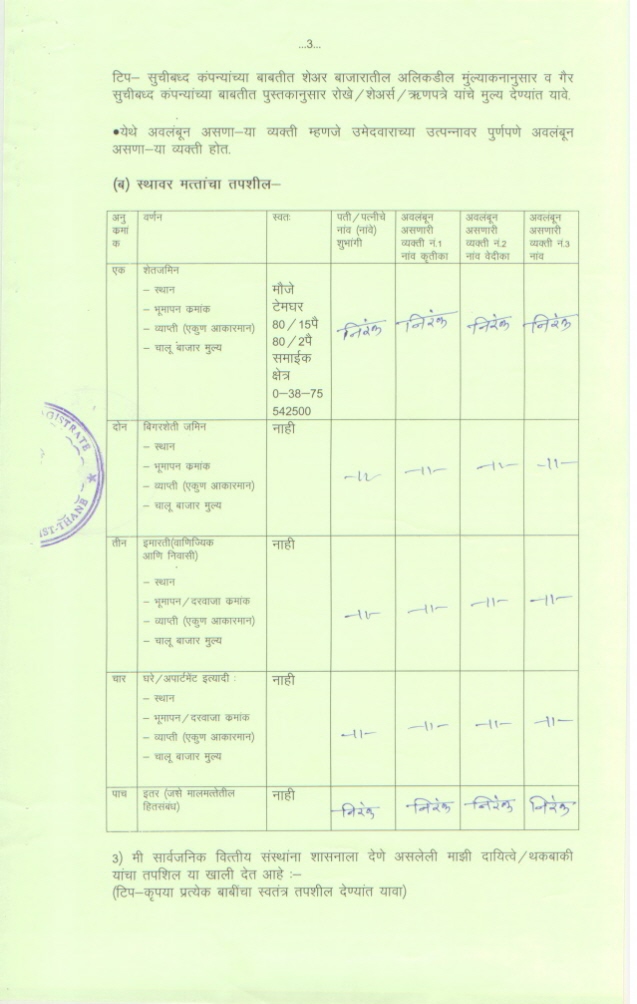 ...3...
टिप– सुचीबध्द कंपन्यांच्या बाबतीत शेअर बाजारातील अलिकडील मुंल्याकनानुसार व गैर
सुचीबध्द कंपन्यांच्या बाबतीत पुस्तकानुसार रोखे/शेअर्स/ऋणपत्रे यांचे मुल्य देण्यांत यावे.
•येथे अवलंबून असणा–या व्यक्ती म्हणजे उमेदवाराच्या उत्पन्नावर पुर्णपणे अवलंबून
असणा–या व्यक्ती होत.
(ब) स्थावर मत्तांचा तपशील–
अनु
क्रमां
क
वर्णन
स्वत
पती/पत्नीचे
नांव (नांवे)
शुभांगी
अवलंबून
असणारी
व्यक्ती नं.1
नांव कृतीका
अवलंबून
असणारी
व्यक्ती नं.2
नांव वेदीका
अवलंबून
असणारी
व्यक्ती नं.3
नांव
एक
शेतजमिन
– स्थान
– भूमापन कमांक
– व्याप्ती (एकुण आकारमान)
– चालू बाजार मुल्य
मौजे
टेमघर
80/15पै
80/2पै
समाईक
क्षेत्र
0–38–75
542500
निरंक निरंक निरंक निरंक
दोन
बिगरशेती जमिन
– स्थान
– भूमापन कमांक
– व्याप्ती (एकुण आकारमान)
– चालू बाजार मुल्य
नाही
–11– –11– –11– –11–
तीन
इमारती(वाणिज्यिक
आणि निवासी)
– स्थान
– भूमापन/दरवाजा कमांक
– व्याप्ती (एकुण आकारमान)
– चालू बाजार मुल्य
नाही
–11– –11– –11– –11–
चार
घरे/अपार्टमेंट इत्यादी :
– स्थान
– भूमापन/दरवाजा कमांक
– व्याप्ती (एकुण आकारमान)
– चालू बाजार मुल्य
नाही
–11– –11– –11– –11–
पाच
इतर (जसे मालमत्तेतील
हितसंबंध)
नाही
निरंक निरंक निरंक निरंक
3) मी सार्वजनिक वित्तीय संस्थांना शासनाला देणे असलेली माझी दायित्वे/थकबाकी
यांचा तपशिल या खाली देत आहे :–
(टिप–कृपया प्रत्येक बाबींचा स्वतंत्र तपशील देण्यांत यावा)